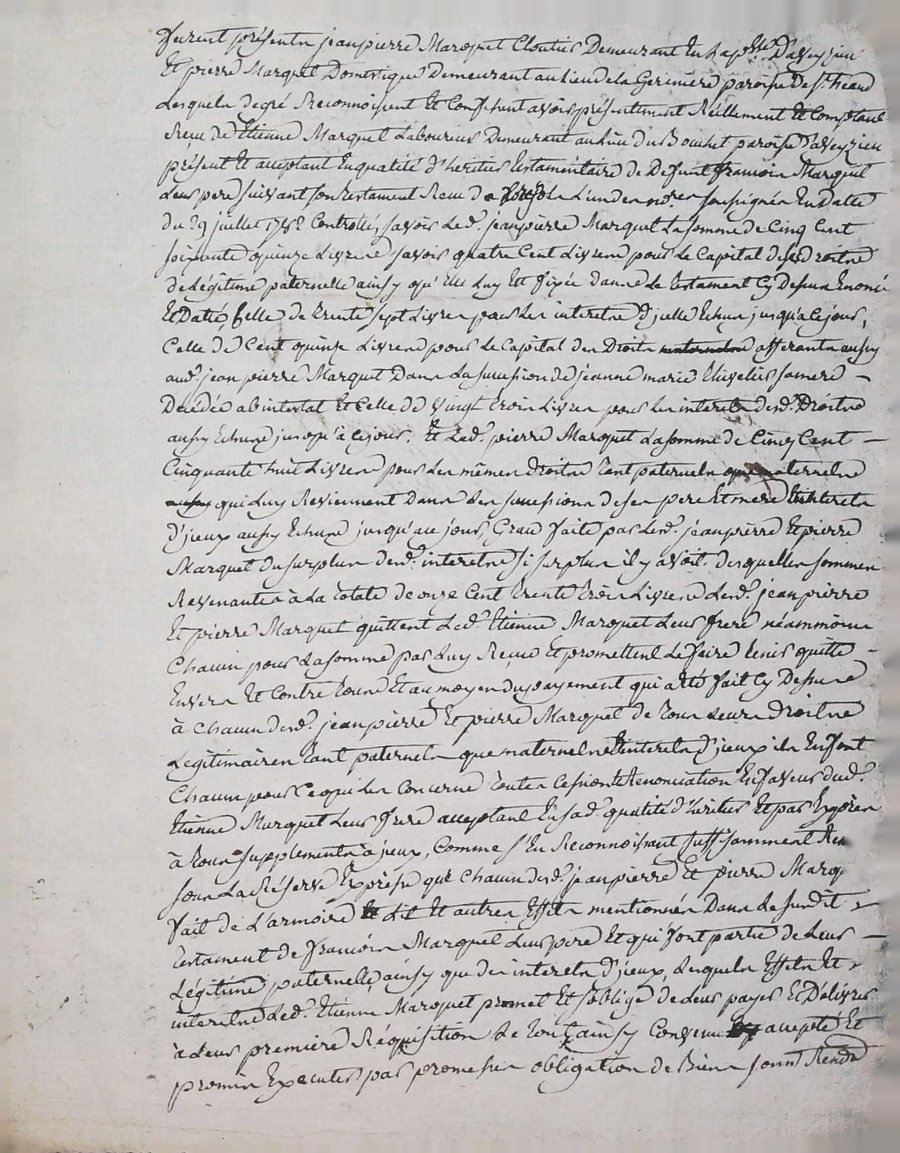 furent présents jean pierre Marquet Cloutier Demeurant En La parsse D'aveyzieu
Et pierre Marquet Domestique Demeurant au lieu de la Gereniere paroisse De St. heand
Lesquels de gré Reconnoissent Et Confessent avoir présentement Réellement Et Comptant
Reçu de Etienne Marquet Laboureur Demeurant au lieu du Bouchet paroisse D'aveyzieu
présent Et acceptant En qualité d'heritier testamentaire de Defunt francois Marquet
Leur pere suivant son testament Reçu de L'un des nores soussignés En Datte
du 29 juillet 1782 Controllé, savoir Led. jean pierre Marquet La somme de Cinq Cent
soixante quinze Livres savoir quatre Cent Livres pour Le Capital de ses droits
de Légitime paternelle ainsy qu'Elle Luy Est fixée dans Le testament Cy Dessus Enoncé
Et Datté, Celle de trente sept Livres pour Les interets d'jcelle Echus jusqu'à ce jour,
Celle de Cent quinze Livres pour Le Capital des Droits afferants aussy
aud. jean pierre Marquet Dans La succession de jeanne marie sa mere
Decedée ab intestat Et Celle de vingt trois Livres pour Les interets desd. Droits
aussy Echus jusqu'à ce jour. Et Led. pierre Marquet La somme de Cinq Cent
Cinquante huit Livres pour Les mêmes droits tant paternels que maternels
qui Luy Reviennent Dans Les successions de ses pere Et mere Et interets
d'jceux aussy Echus jusqu'à ce jour, Grace faite par Lesd. jean pierre Et pierre
Marquet du surplus desd. interets si surplus il y avoit. desquelles sommes
Revenantes à La totale de onze Cent trente trois Livres Lesd. jean pierre
Et pierre Marquet quittent Led. Etienne Marquet Leur frere néammoins
Chacun pour La somme par Luy Reçue Et promettent Le faire tenir quitte
Envers Et Contre tous Et au moyen du payement qui a Eté fait Cy Dessus
à Chacun desd. jean pierre Et pierre Marquet de tous Leurs Droits
Légitimaires tant paternels que maternels Et interets d'jceux ils En font
Chacun pour Ce qui Les Concerne toutes Cession Et Renonciation En faveur dud.
Etienne Marquet Leur frere acceptant En sad. qualité d'heritier Et par Exprès
à tous supplements d'jceux, Comme s'En Reconnoissant suffisamment
sous La Réserve Expresse que Chacun desd. jean pierre Et pierre Marq
fait de L'armoire Lit Et autres Effets mentionnés Dans Le susdit
testament de francois Marquet Leur pere Et qui font partie de Leur
Légitime paternelle, ainsy que des interets d'jceux, Lesquels Effets Et
interets Led. Etienne Marquet promet Et s'oblige de Leur payer Et Délivrer
à Leur premiere Réquisition Le tout ainsy Convenu accepté Et
promis Executer par promesses obligation de Biens soum Rends